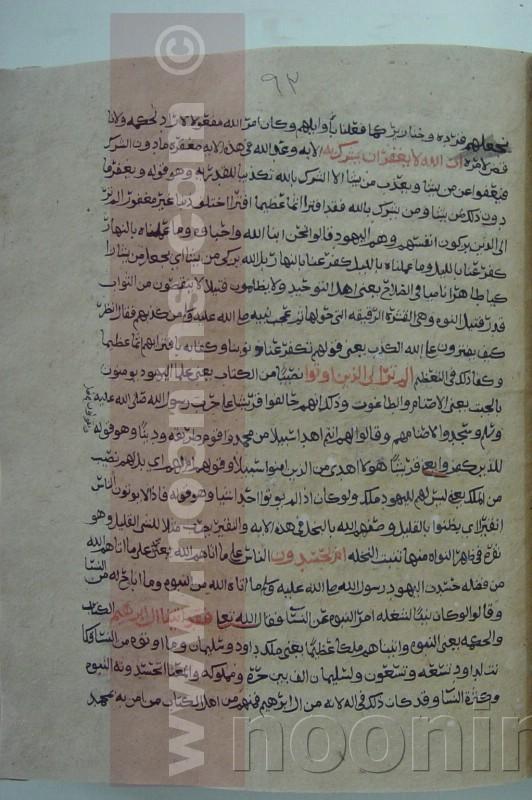 ٩٣
نجعلهم قردة وخنازير كما فعلنا باوايلهم وكان امر الله مفعولا لا راد لحكمه ولا نا
قض لامره ان الله لا يغفر ان يشرك به الاية وعد الله في هذه الاية مغفرة مادون الشرك
فيعفوا عن من يشا ويعذب من يشا الا الشرك بالله تكذيبا للقدرية وهو قوله ويغفر ما
دون ذلك لمن يشا ومن يشرك بالله فقد افترا اثما عظيما اختلق ذنبا غير مغفور الم تر
الى الذين يزكون انفسهم وهم اليهود قالوا نحن ابنا الله واحباوه وما عملناه بالنهار
كفر عنا بالليل وما عملناه بالليل كفر عنا بالنهار بل الله يزكي من يشا اي يجعل من يشا زا
كيا طاهرا ناميا في الصلاح يعني اهل التوحيد ولا يظلمون فتيلا لا ينقصون من الثواب
قدر فتيل النوه وهي القشرة الرقيقه التي حولها ثم عجب نبيه صلى الله عليه من كذبهم فقال انظر
كيف يفترون على الله الكذب يعني قولهم يكفر عنا ذنوبنا وكفا به بافترايهم اثما عظيما
وكفا ذلك في التعظيم الم تر الى الذين اوتوا نصيبا من الكتاب يعني علما اليهود يومنون
بالجبت يعني الاصنام والطاغوت وذلك انهم حالفوا قريشا على حرب رسول الله صلى الله عليه
وسلم وسجدوا لاصنامهم وقالوا لهم انتم اهدى سبيلا من محمد واقوم طريقه ودينا وهو قوله
للذين كفروا يعني قريشا هولا اهدى من الذين امنوا سبيلا وقوله ام لهم اي بل لهم نصيب
من الملك يعني ليس لليهود ملك ولو كان اذا لم يوتوا احدا شيا وهو قوله فاذا لا يوتون الناس
نقيرا اي يضنوا بالقليل وصفهم الله بالبخل في هذه الاية والنقير يضرب مثلا للشي القليل وهو
نقرة في ظهر النواه منها تنبت النخله ام يحسدون الناس على ما اتاهم الله يعني على ما اتاهم الله
من فضله حسدت اليهود رسول الله صلى الله عليه وسلم على ما اتاه الله من النبوه وما اباح له من النسا
وقالوا لو كان نبيا لشغله امر النبوه عن النسا فقال الله تعا فقد اتينا ال ابرهيم الكتاب
والحكمه يعني النبوه واتيناهم ملكا عظيما يعني ملك داود وسليمان وما اوتوه من النسا فكا
نت لداود تسعة وتسعون ولسليمان الف بين حرة ومملوكه
وكثرة النسا وقد كان ذلك في اله لانه من ال ابرهيم فمنهم من اهل الكتاب من امن به بمحمد
www.noormags.com ©
noonin